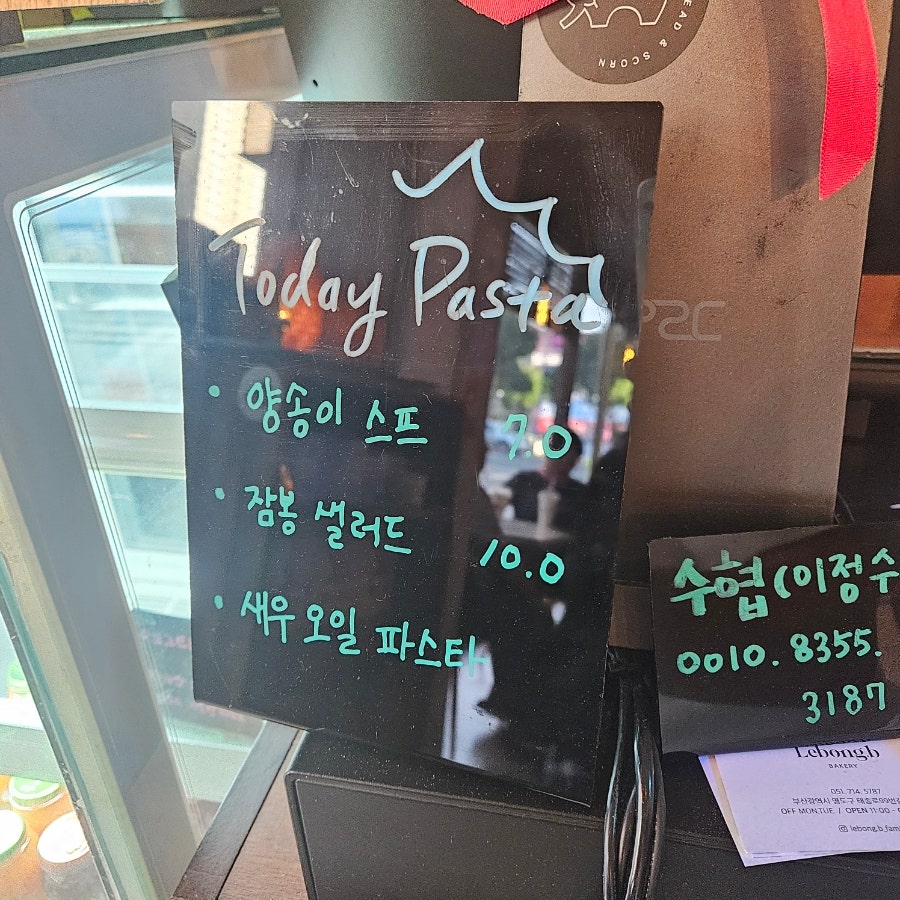 EAD & SCORN
Today Pasta
• 양송이 스프 7.0
• 잠봉 샐러드 10.0
• 새우 오일 파스타
수협(이정수
0010. 8355.
3187
Lebong.b
BAKERY
051. 714. 5787
부산광역시 영도구
OFF MON,TUE / OPEN 11:00 -
lebong.b_fam